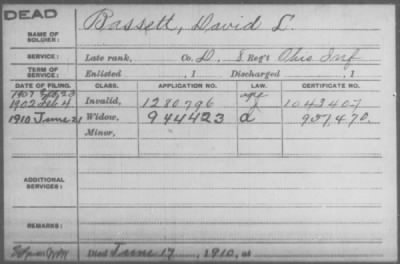 DEAD
NAME OF SOLDIER: Bassett, David L.
SERVICE: Late rank, Co. D, 8 Reg't Ohio Inf
TERM OF SERVICE: Enlisted , 1 Discharged , 1
DATE OF FILING. CLASS. APPLICATION NO. LAW. CERTIFICATE NO.
1907 23
1902 Feb 4 Invalid, 1280796 1043407
1910 June 21 Widow, 944423 a 937,470.
Minor,
ADDITIONAL SERVICES:
REMARKS:
Died June 17, 1910, at